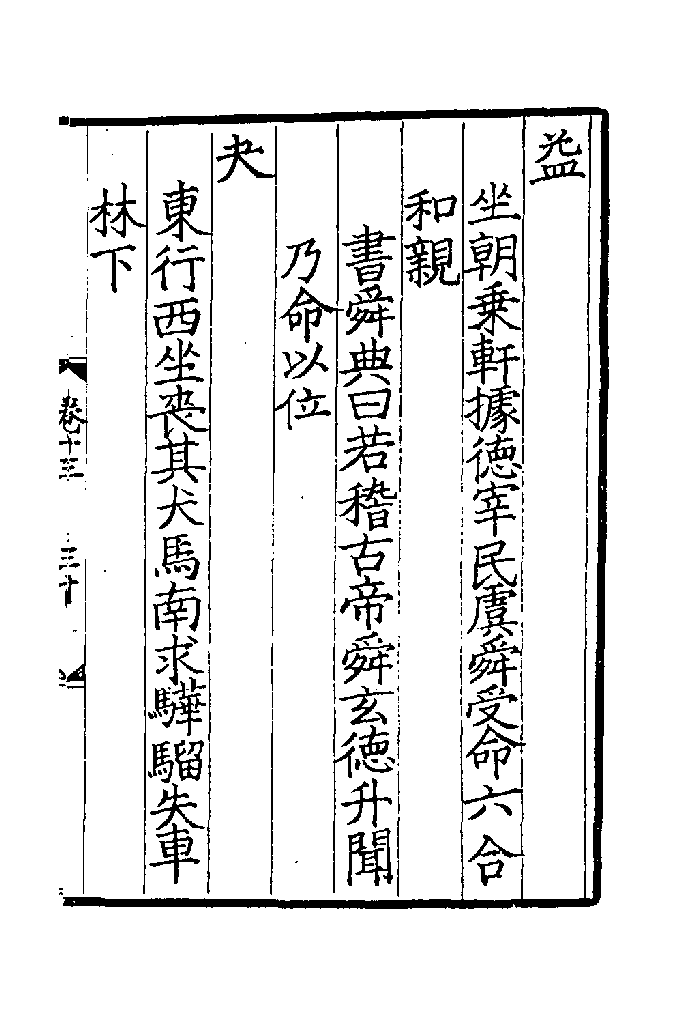 益
坐朝乗軒據徳宰民虞舜受命六合
和親
書舜典曰若稽古帝舜玄徳升聞
乃命以位
夬
東行西坐喪其犬馬南求驊騮失車
林下
卷十三 三十